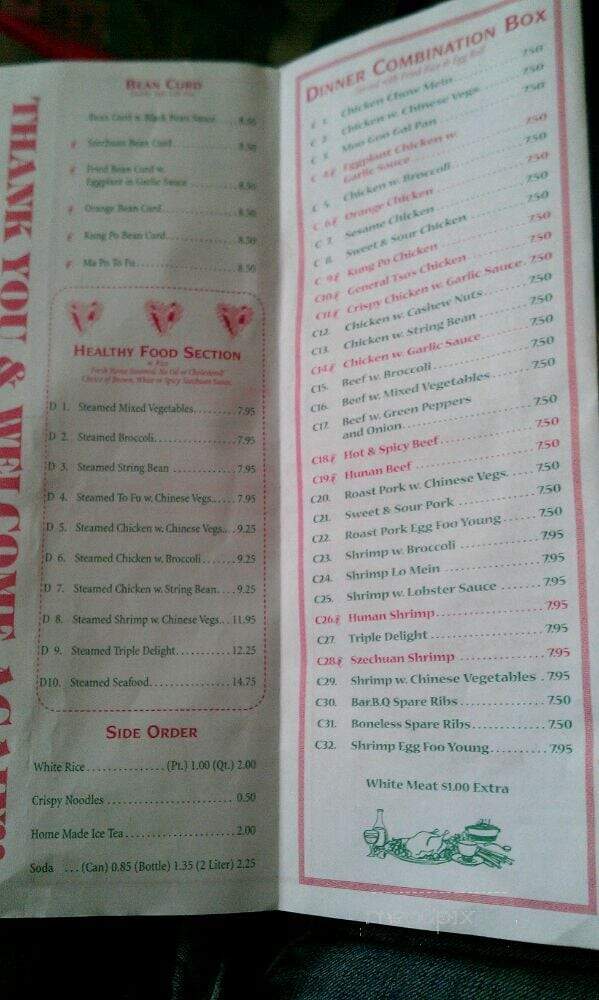 THANK YOU & WELCOME AGAIN!
BEAN CURD
Bean Curd w. Black Bean Sauce 8.50
Szechuan Bean Curd 8.50
Fried Bean Curd w.
Eggplant in Garlic Sauce 8.50
Orange Bean Curd 8.50
Kung Po Bean Curd 8.50
Ma Po To Fu 8.50
HEALTHY FOOD SECTION
w. Rice
Fresh Home Steamed, No Oil or Cholesterol
Choice of Brown, White or Spicy Szechuan Sauce
D 1. Steamed Mixed Vegetables 7.95
D 2. Steamed Broccoli 7.95
D 3. Steamed String Bean 7.95
D 4. Steamed To Fu w. Chinese Vegs. 7.95
D 5. Steamed Chicken w. Chinese Vegs. 9.25
D 6. Steamed Chicken w. Broccoli 9.25
D 7. Steamed Chicken w. String Bean 9.25
D 8. Steamed Shrimp w. Chinese Vegs. 11.95
D 9. Steamed Triple Delight 12.25
D10. Steamed Seafood 14.75
SIDE ORDER
White Rice (Pt.) 1.00 (Qt.) 2.00
Crispy Noodles 0.50
Home Made Ice Tea 2.00
Soda (Can) 0.85 (Bottle) 1.35 (2 Liter) 2.25
DINNER COMBINATION BOX
Served with Fried Rice & Egg Roll
C 1. Chicken Chow Mein 7.50
C 2. Chicken w. Chinese Vegs. 7.50
C 3. Moo Goo Gai Pan 7.50
C 4. Eggplant Chicken w.
Garlic Sauce 7.50
C 5. Chicken w. Broccoli 7.50
C 6. Orange Chicken 7.50
C 7. Sesame Chicken 7.50
C 8. Sweet & Sour Chicken 7.50
C 9. Kung Po Chicken 7.50
C10. General Tso's Chicken 7.50
C11. Crispy Chicken w. Garlic Sauce 7.50
C12. Chicken w. Cashew Nuts 7.50
C13. Chicken w. String Bean 7.50
C14. Chicken w. Garlic Sauce 7.50
C15. Beef w. Broccoli 7.50
C16. Beef w. Mixed Vegetables 7.50
C17. Beef w. Green Peppers
and Onion 7.50
C18. Hot & Spicy Beef 7.50
C19. Hunan Beef 7.50
C20. Roast Pork w. Chinese Vegs. 7.50
C21. Sweet & Sour Pork 7.50
C22. Roast Pork Egg Foo Young 7.50
C23. Shrimp w. Broccoli 7.95
C24. Shrimp Lo Mein 7.95
C25. Shrimp w. Lobster Sauce 7.95
C26. Hunan Shrimp 7.95
C27. Triple Delight 7.95
C28. Szechuan Shrimp 7.95
C29. Shrimp w. Chinese Vegetables 7.95
C30. Bar.B.Q Spare Ribs 7.50
C31. Boneless Spare Ribs 7.50
C32. Shrimp Egg Foo Young 7.95
White Meat $1.00 Extra